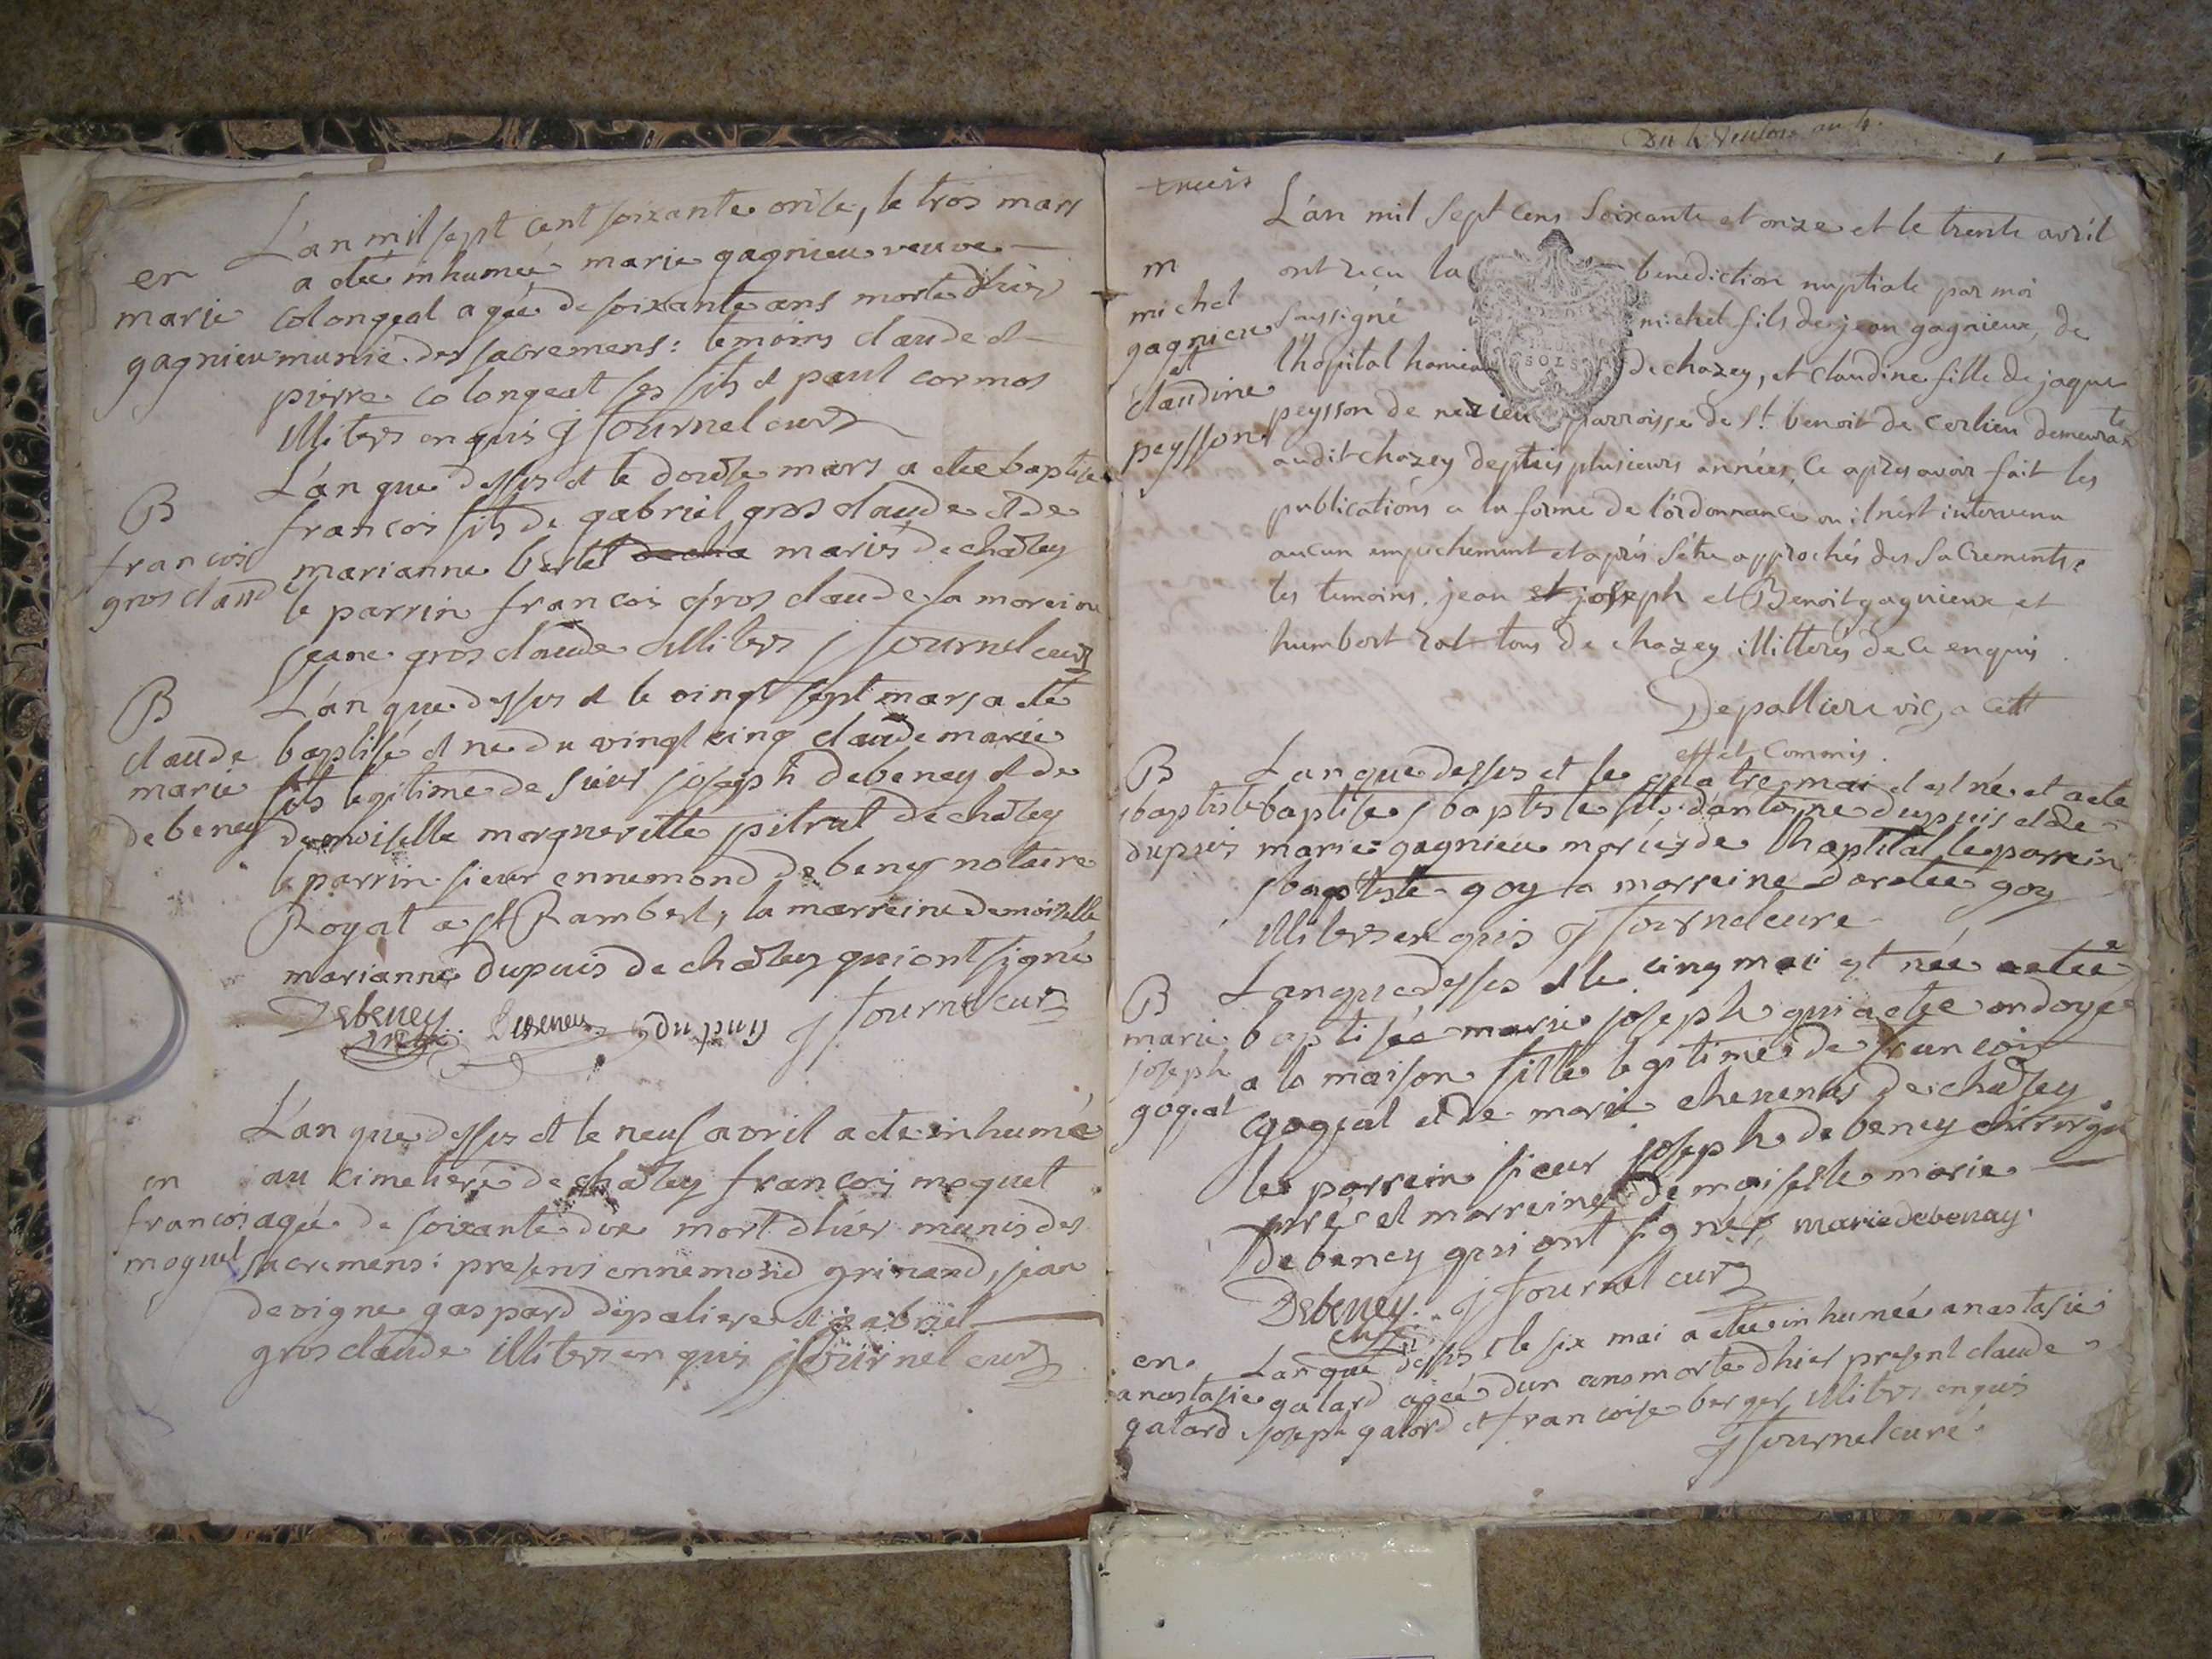 L'an mil sept cent soixante onse, le trois mars
en
a eteé inhumeé marie gagnieu veuve
marie
colongeat ageé de soixante ans morte dhier
gagnieu
munie des sacremens: temoins claude et
pierre colongeat ses fils et paul cormos
illiteres enquis j fournel curé
L'an que dessus et le douse mars a eteé baptisé
B
francois fils de gabriel gros claude et de
francois
marianne bertet mariés de chasey
gros claud
le parrin francois gros claude la mareine
jeane gros claude illiteres j fournel curé
B
L'an que dessus et le vingt sept mars a eté
claude
baptisé et ne du vingt cinq claude marie
marie
fils legitime de sieur joseph debeney et de
debeney
demoiselle margueritte pitrat de chasey
le parrin sieur ennemond debeney notaire
Royal a st Rambert, la marreine demoiselle
marianne dupuis de chasey qui ont signé
Debeney Debeney dupuy j fournel curé
L'an que dessus et le neuf avril a eté inhumé
en
au cimetiere de chasey francois moquet
francois
ageé de soixante dix mort dhier munis des
moquet
sacremens: presens ennemond grinand, jean
devigne gaspard depaliere et gabriel
gros claude illiteres enquis j fournel curé
L'an mil sept cens soixante et onze et le trente avril
m
ont reçu la benediction nuptiale par moi
michel
soussigné michel fils de jean gagnieux, de
gagnieu
et
l'hopital hameau de chazey, et claudine fille de jaque
claudine
peysson de parroisse de St. benoit de Cerlieu demeurante
peysson
audit chazey depuis plusieurs années, ce apres avoir fait les
publications a la forme de l'ordonnance ou il n'est intervenu
aucun empechement et après s'etre approchés des sacrements,
les temoins, jean et joseph et Benoit gagnieux et
humbert rat tous de chazey illitterés de ce enquis
Depalliere vic, a cett
effet Commis.
B
L'an que dessus et le quatre mai est né et a eté
jbaptiste
baptisé jbaptiste fils dantoine dupuis et de
dupuis
marie gagnieu mariés de lhoptital le parrein
jbaptiste goy la marreine dorotée goy
illiteres enquis j fournel curé
L'an que dessus et le cinq mai est neé a eteé
B
marie
baptiseé marie joseph qui a eteé ondoyeé
joseph
a la maison fille legitime de francois
gogeat
gogeat et de marie chenevas de chasey
le parrein sieur joseph debeney chirurgi
juré et marreine demoiselle marie
debeney qui ont signés, marie debenay.
Debeney. j fournel curé
chir
L'an que dessus et le six mai a eteé inhumeé anastasie
en
anastasie
galard ageé dun ans morte dhier present claude
galard
joseph galard et francoise berger illiteres enquis
j fournel curé
SOLS